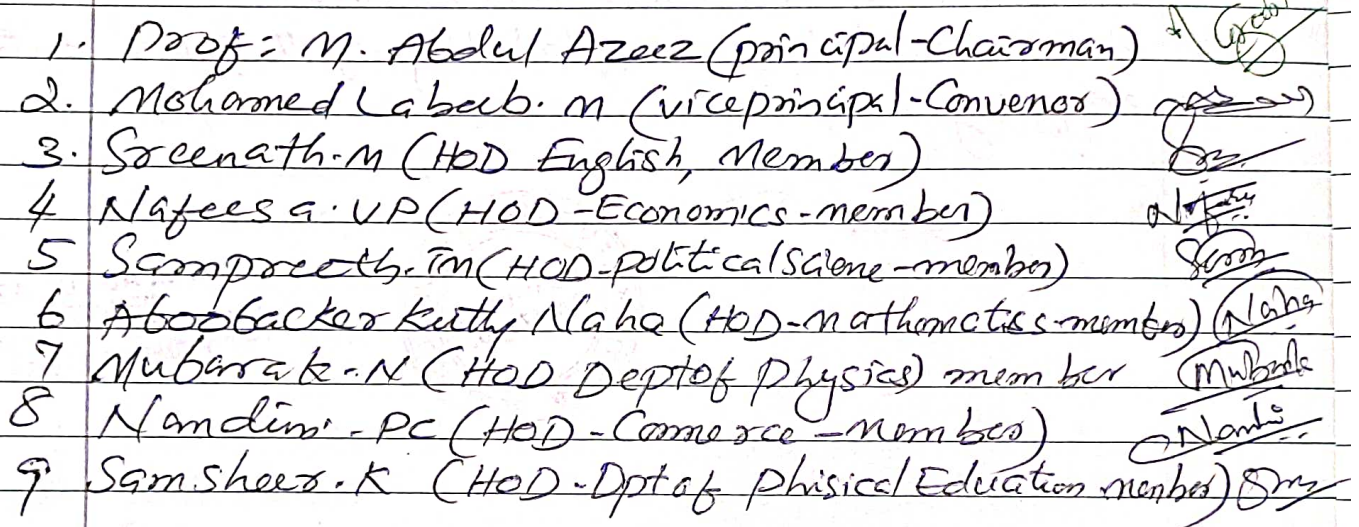 1. Prof: M. Abdul Azeez (principal-Chairman)
2. Mohammed Labeeb. M (vice principal-Convenor)
3. Sreenath.M (HOD English, Member)
4 Nafeesa. VP (HOD-Economics-member)
5 Sampreeth. TM (HOD-political Sciene-member)
6 Aboobacker kutty Naha (HOD-mathematics-member) Naha
7 Mubarak.N (HOD Dept of Physics) member Mubarak
8 Nandini.PC (HOD-Commerce-Member) Nandi
9 Samsheer.K (HOD-Dpt of Phisical Eduction member)